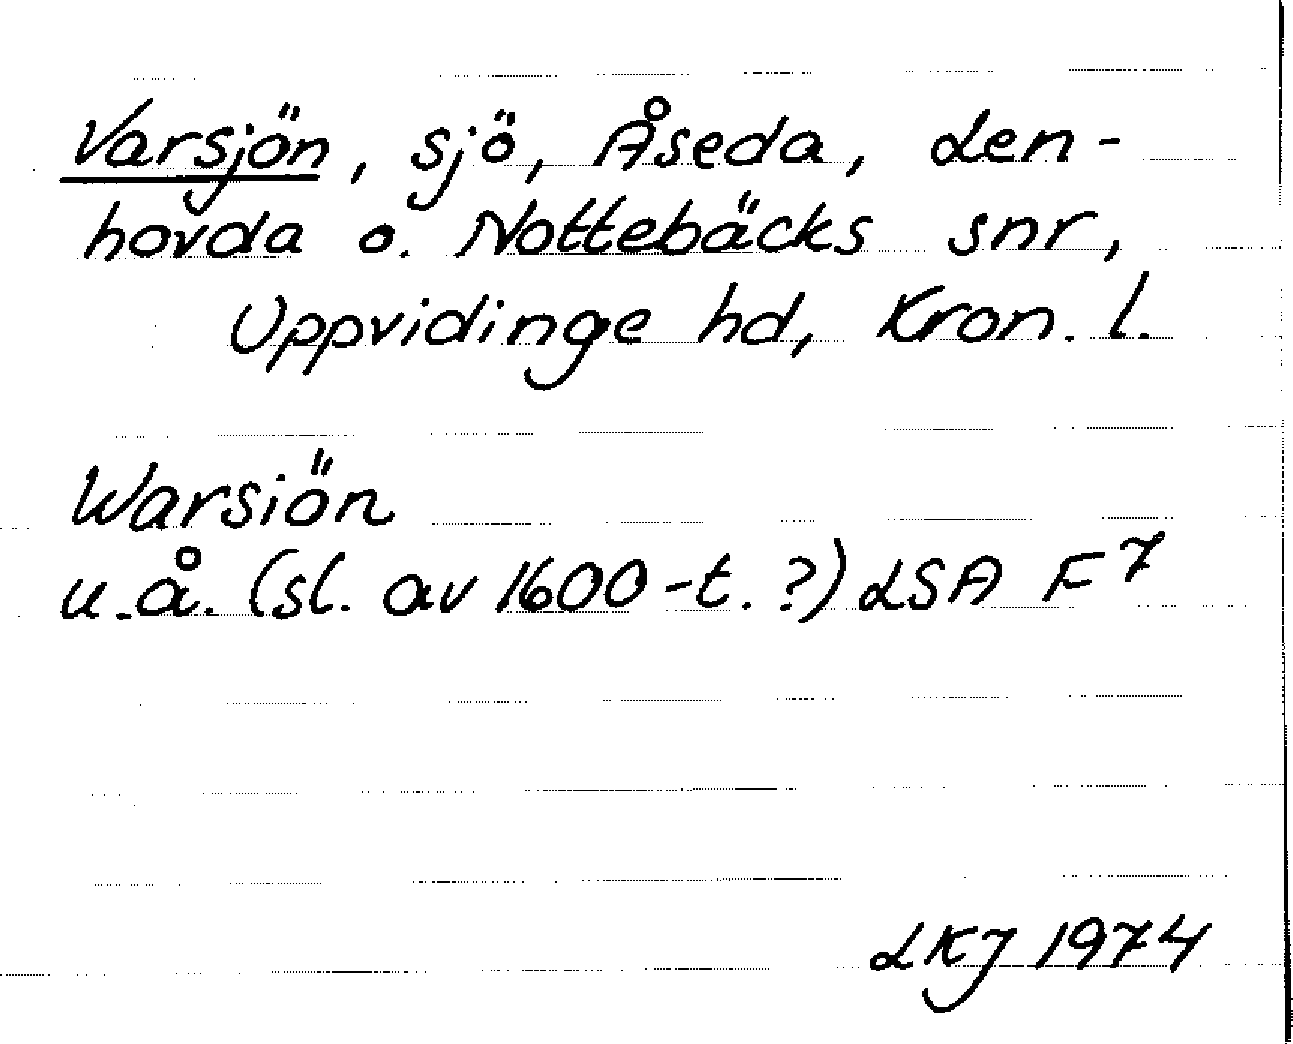 Varsjön, sjö, Åseda, Len-
hovda o. Nottebäcks snr,
Uppvidinge hd, Kron. l.
Warsiön
u.å. (sl. av 1600-t. ?) LSA F⁷
LKJ 1974